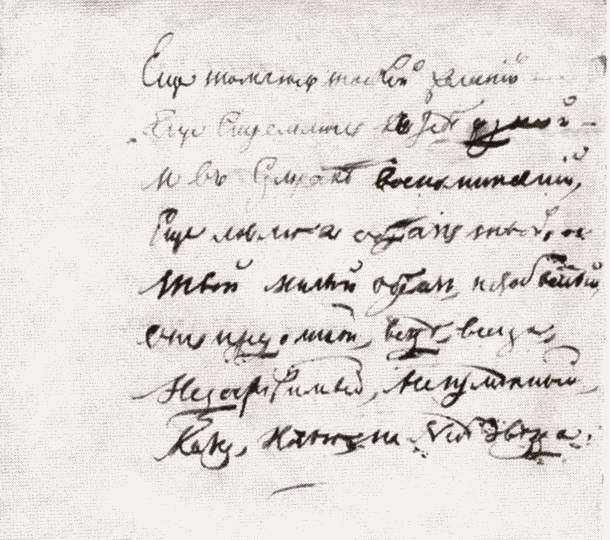 Еще томлюсь тоской желаній —
Еще стремлюсь къ тебѣ душой —
И въ сумракѣ воспоминаній,
Еще ловлю я образъ твой..
Твой милый образъ, незабвенный,
Онъ предо мной, вездѣ, всегда,
Недостижимый, неизмѣнный,
Какъ, ночью на небѣ звѣзда.